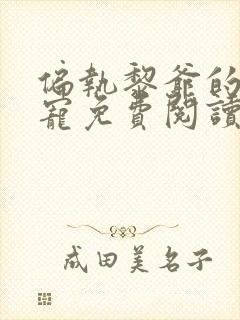 偏執黎爺的
寵免費閱讀
成田美名子